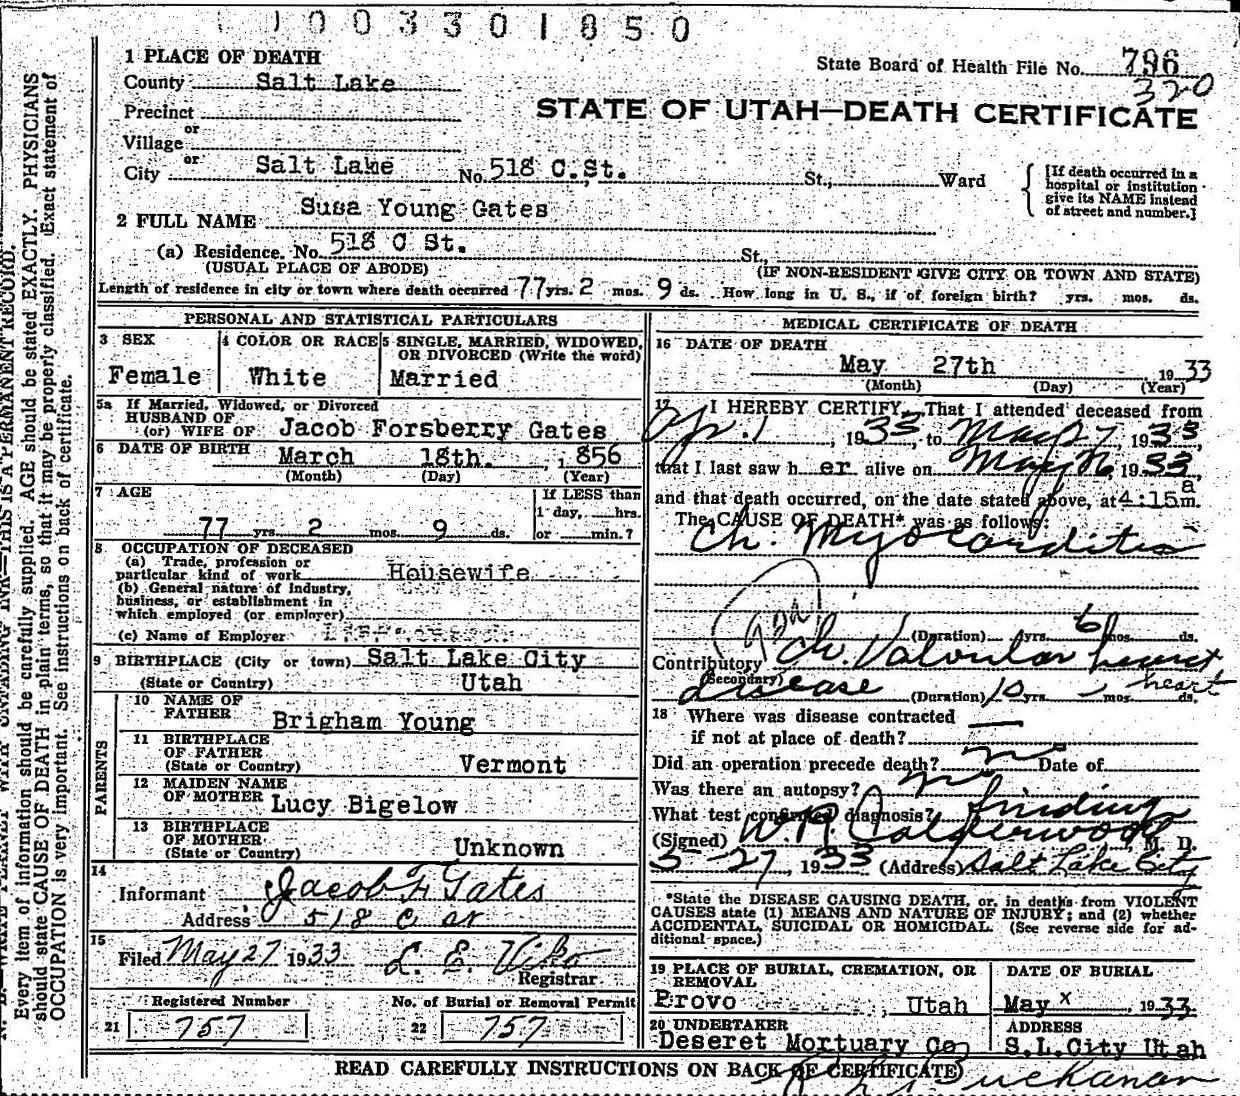 1003301850
1 PLACE OF DEATH
State Board of Health File No. 796
320
County Salt Lake
STATE OF UTAH—DEATH CERTIFICATE
Precinct
or
Village
or
City Salt Lake No. 518 C.St. St., Ward
[If death occurred in a
hospital or institution
give its NAME instead
of street and number.]
2 FULL NAME Susa Young Gates
(a) Residence. No. 518 C St. St.,
(USUAL PLACE OF ABODE) (IF NON-RESIDENT GIVE CITY OR TOWN AND STATE)
Length of residence in city or town where death occurred 77 yrs. 2 mos. 9 ds. How long in U. S., if of foreign birth? yrs. mos. ds.
PERSONAL AND STATISTICAL PARTICULARS
3 SEX 4 COLOR OR RACE 5 SINGLE, MARRIED, WIDOWED,
OR DIVORCED (Write the word)
Female White Married
5a If Married, Widowed, or Divorced
HUSBAND OF
(or) WIFE OF Jacob Forsberry Gates
6 DATE OF BIRTH March 18th. , 1856
(Month) (Day) (Year)
7 AGE If LESS than
1 day, hrs.
77 yrs. 2 mos. 9 ds. or min.?
8 OCCUPATION OF DECEASED
(a) Trade, profession or
particular kind of work Housewife
(b) General nature of industry,
business, or establishment in
which employed (or employer)
(c) Name of Employer
9 BIRTHPLACE (City or town) Salt Lake City
(State or Country) Utah
PARENTS
10 NAME OF
FATHER Brigham Young
11 BIRTHPLACE
OF FATHER
(State or Country) Vermont
12 MAIDEN NAME
OF MOTHER Lucy Bigelow
13 BIRTHPLACE
OF MOTHER
(State or Country) Unknown
14
Informant Jacob F Gates
Address 518 C St
15
Filed May 27 1933 L. E. Viko
Registrar
Registered Number No. of Burial or Removal Permit
21 757 22 757
MEDICAL CERTIFICATE OF DEATH
16 DATE OF DEATH
May 27th , 1933
(Month) (Day) (Year)
17 I HEREBY CERTIFY, That I attended deceased from
Apr. 1, 1933, to May 27, 1933,
that I last saw her alive on May 26, 1933,
and that death occurred, on the date stated above, at 4:15 a m.
The CAUSE OF DEATH* was as follows:
Ch. Myocarditis
(Duration) yrs. 6 mos. ds.
Contributory Ch. Valvular heart
(Secondary)
disease (Duration) 10 yrs. mos. ds.
heart
18 Where was disease contracted
if not at place of death?
Did an operation precede death? no Date of
Was there an autopsy? no
What test confirmed diagnosis? finding
(Signed) W. R. Calderwood M. D.
5-27, 1933 (Address) Salt Lake City
*State the DISEASE CAUSING DEATH, or, in deaths from VIOLENT
CAUSES state (1) MEANS AND NATURE OF INJURY; and (2) whether
ACCIDENTAL, SUICIDAL OR HOMICIDAL. (See reverse side for ad-
ditional space.)
19 PLACE OF BURIAL, CREMATION, OR
REMOVAL
DATE OF BURIAL
Provo , Utah May x , 1933
20 UNDERTAKER ADDRESS
Deseret Mortuary Co S.L.City Utah
READ CAREFULLY INSTRUCTIONS ON BACK OF CERTIFICATE)
Buchanan
THIS IS A PERMANENT RECORD.
Every item of information should be carefully supplied. AGE should be stated EXACTLY. PHYSICIANS
should state CAUSE OF DEATH in plain terms, so that it may be properly classified. Exact statement of
OCCUPATION is very important. See instructions on back of certificate.